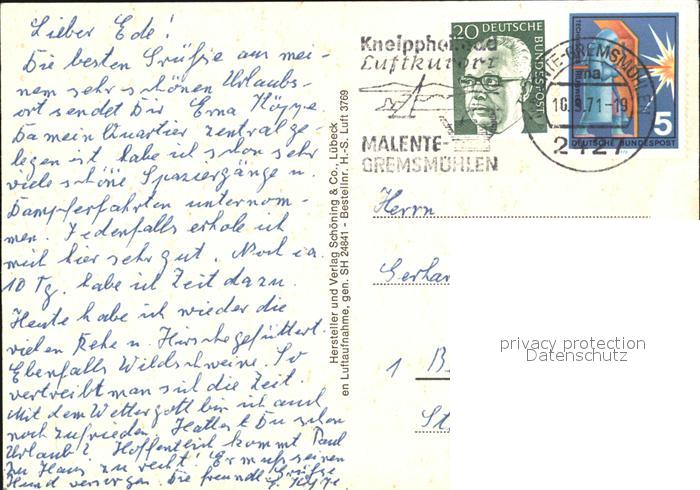 Lieber Ede!
Die besten Grüße aus mei-
nem sehr schönen Urlaubs-
ort sendet Dir Erna Köppe
Da mein Quartier zentral ge
legen ist habe ich schon sehr
viele schöne Spaziergänge u.
Dampferfahrten unternom-
men. Jedenfalls erhole ich
mich hier sehr gut. Noch ca.
10 Tg. habe ich Zeit dazu.
Heute habe ich wieder die
vielen Rehe u. Hirsche gefüttert.
Ebenfalls Wildschweine. So
vertreibt man sich die Zeit.
Mit dem Wettergott bin ich auch
noch zufrieden. Hattest Du schon
Urlaub? Hoffentlich kommt Paul
zu Haus zu recht! Er muß seinen
Hund versorgen. Die freundl. Grüße
Hersteller und Verlag Schöning & Co., Lübeck
en Luftaufnahme, gen. SH 24841 - Bestellnr. H.-S. Luft 3769
Kneippheilbad
Luftkurort
MALENTE-
GREMSMÜHLEN
20 DEUTSCHE BUNDESPOST
5
DEUTSCHE BUNDESPOST
MALENTE-GREMSMÜHLEN
ma
10.9.71-19
2427
Herrn
Gerhar
1 B
St
privacy protection
Datenschutz